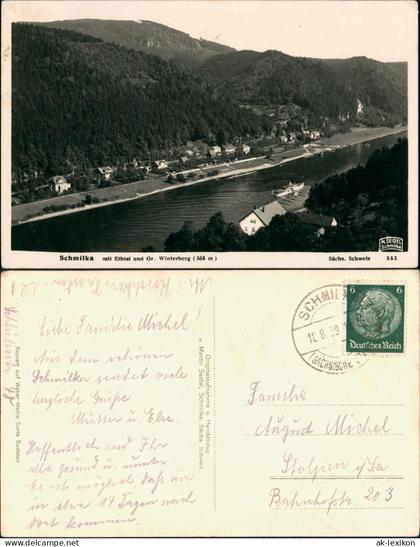 Schmilka mit Elbtal und Gr. Winterberg (553 m)
Sächs. Schweiz
M. SEIDEL
Schmilka
353
Liebe Familie Michel!
Aus dem schönen
Schmilka sendet viele
herzliche Grüße
Mutter u. Elre.
Hoffentlich seid Ihr
alle gesund u. munter.
Es ist möglich, daß wir
in etwa 14 Tagen nach
dort kommen.
Originalaufnahme u. Handabzug
v. Martin Seidel, Schmilka, Sächs. Schweiz
SCHMILKA
18.8.39
(SÄCHSISCHE
6 6
Deutsches Reich
Familie
August Michel
Stolpen i/Sa
Bahnhofstr. 203
© ak-lexikon
ak-lexikon.de